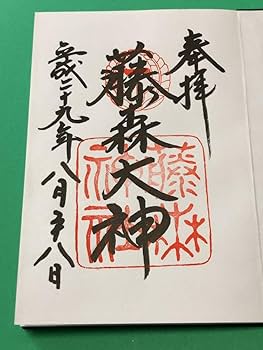 奉拝
藤森大神
藤森
神社
平成二十九年八月二十八日